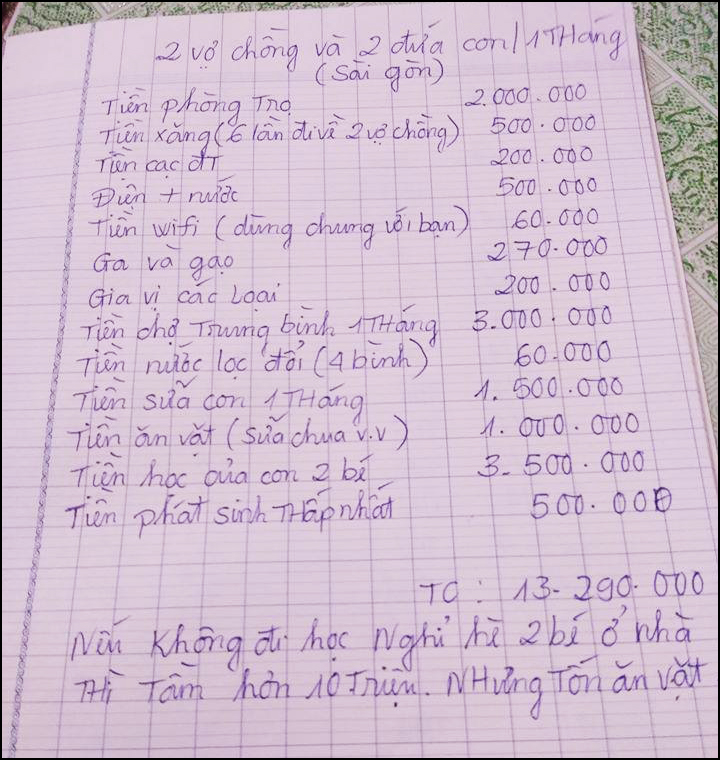 2 vợ chồng và 2 đứa con / 1 THáng
(Sài gòn)
Tiền phòng Trọ 2.000.000
Tiền xăng (6 lần đi về 2 vợ chồng) 500.000
Tiền cạc ĐT 200.000
Điện + nước 500.000
Tiền wifi (dùng chung với bạn) 60.000
Ga và gạo 270.000
Gia vị các Loại 200.000
Tiền chợ Trung bình 1 THáng 3.000.000
Tiền nước lọc đổi (4 bình) 60.000
Tiền sữa con 1 THáng 1.500.000
Tiền ăn vặt (sữa chua v.v) 1.000.000
Tiền học của con 2 bé 3.500.000
Tiền phát sinh THấp nhất 500.000
TC : 13.290.000
Nếu Không đi học Nghỉ hè 2 bé ở nhà
THì Tầm hơn 10 Triệu. NHưng Tốn ăn vặt